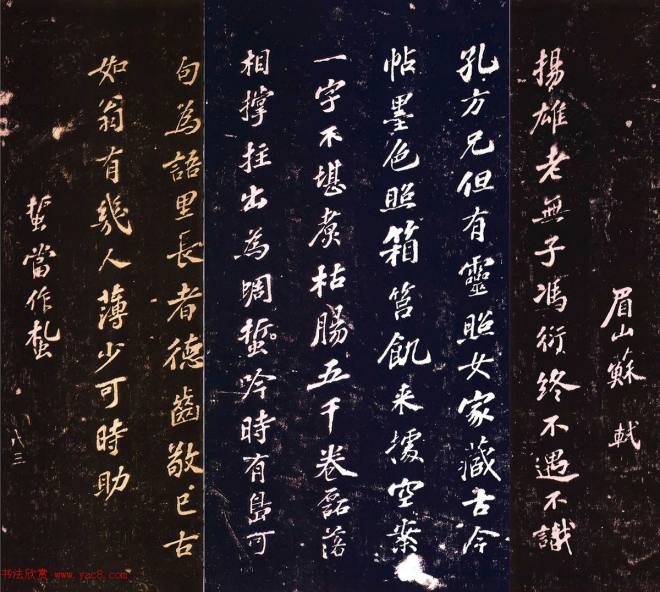 眉山蘇軾
揚雄老無子馮衍終不遇不識
孔方兄但有靈照女家藏古今
帖墨色照箱筥飢来據空案
一字不堪煑枯腸五千卷磊落
相撐拄出為蜩蜇吟時有島可
句為語里長者德齒敬已古
如翁有幾人薄少可時助
蜇當作
八三
书法欣赏 www.yac8.com